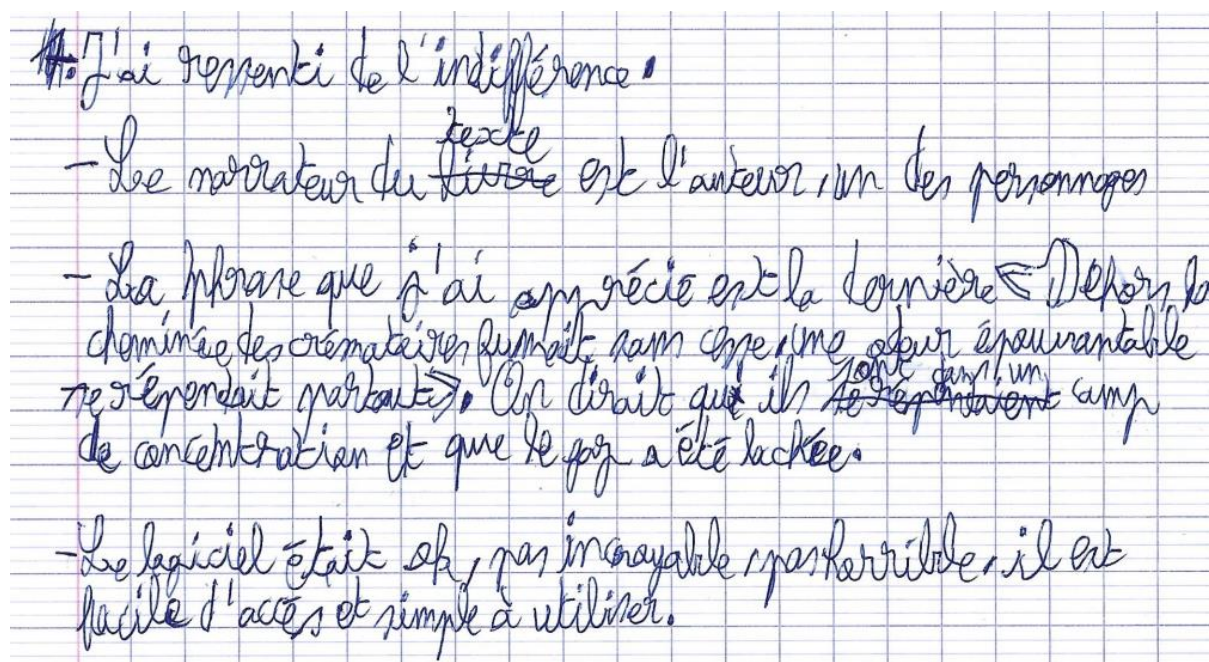 J'ai ressenti de l'indifférence.
texte
- Le narrateur du livre est l'auteur, un des personnages
- La phrase que j'ai apprécié est la dernière « Dehors, la
cheminée des crématoires fumait sans cesse, une odeur épouvantable
se répendait partout ». On dirait que ils sont dans un camp
de concentration et que le gaz a été lachée.
- Le logiciel était ok, pas incroyable, pas horrible, il est
facile d'accès et simple à utiliser.